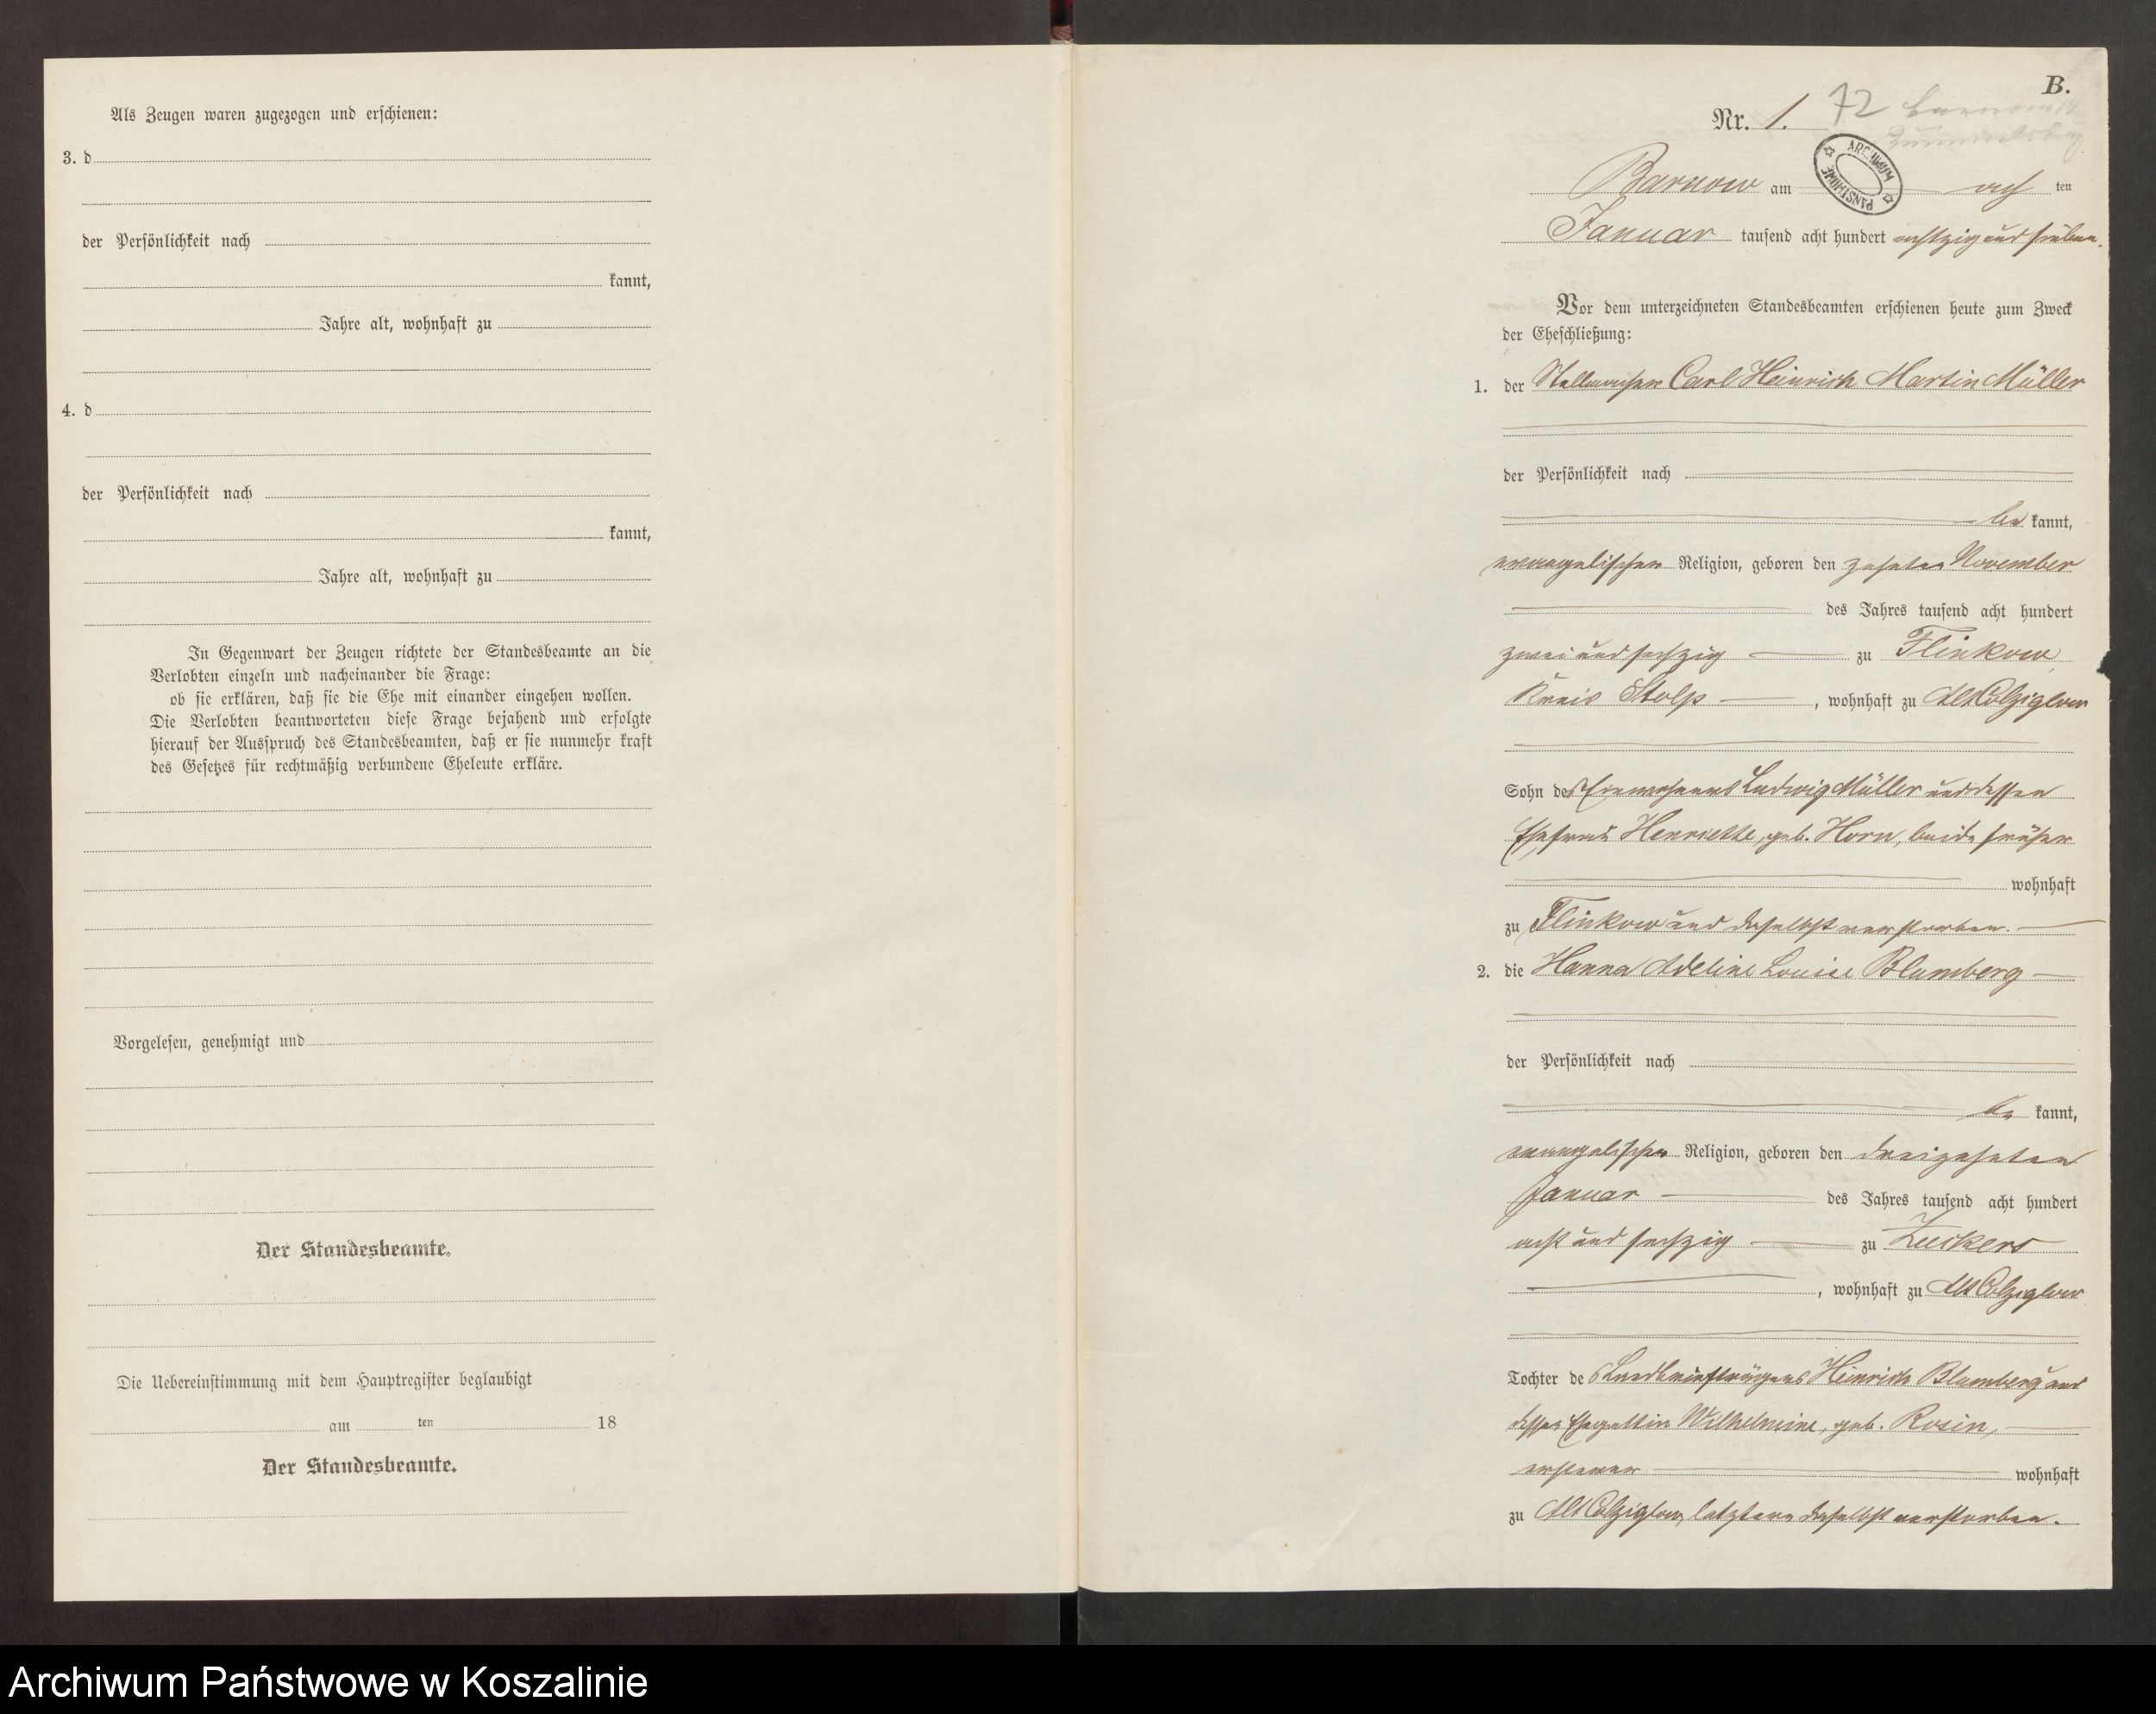 Als Zeugen waren zugezogen und erschienen:
3. d
der Persönlichkeit nach
kannt,
Jahre alt, wohnhaft zu
4. d
der Persönlichkeit nach
kannt,
Jahre alt, wohnhaft zu
In Gegenwart der Zeugen richtete der Standesbeamte an die
Verlobten einzeln und nacheinander die Frage:
ob sie erklären, daß sie die Ehe mit einander eingehen wollen.
Die Verlobten beantworteten diese Frage bejahend und erfolgte
hierauf der Ausspruch des Standesbeamten, daß er sie nunmehr kraft
des Gesetzes für rechtmäßig verbundene Eheleute erkläre.
Vorgelesen, genehmigt und
Der Standesbeamte.
Die Uebereinstimmung mit dem Hauptregister beglaubigt
am ten 18
Der Standesbeamte.
B.
Nr. 1. 72
ARCHIWUM PAŃSTWOWE
Barnow am acht ten
Januar tausend acht hundert achtzig und sieben.
Vor dem unterzeichneten Standesbeamten erschienen heute zum Zweck
der Eheschließung:
1. der Stellmacher Carl Heinrich Martin Müller
der Persönlichkeit nach
be kannt,
evangelischer Religion, geboren den zehnten November
des Jahres tausend acht hundert
zwei und sechzig zu Flinkow,
Kreis Stolp, wohnhaft zu Alt Colziglow
Sohn des Einwohners Ludwig Müller und dessen
Ehefrau Henriette, geb. Horn, beide früher
wohnhaft
zu Flinkow und daselbst verstorben.
2. die Hanna Adeline Louise Blumberg
der Persönlichkeit nach
be kannt,
evangelischer Religion, geboren den dreizehnten
Januar des Jahres tausend acht hundert
acht und sechzig zu Zuckers
, wohnhaft zu Alt Colziglow
Tochter des Landbriefträgers Heinrich Blumberg und
dessen Ehegattin Wilhelmine, geb. Rosin,
ersterer wohnhaft
zu Alt Colziglow, letztere daselbst verstorben.
Archiwum Państwowe w Koszalinie